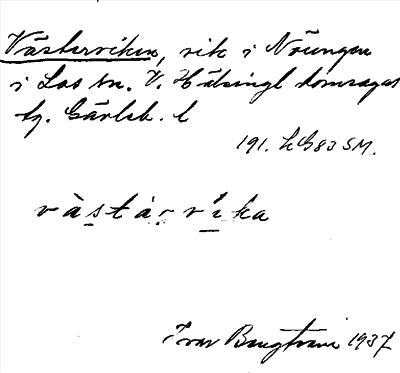 Västerviken, vik i Nöungen
i Los sn. V. Hälsingl domsagas
tg. Gävleb. l
191. LG83SM.
västarvika
Ivar Bengtsson 1937